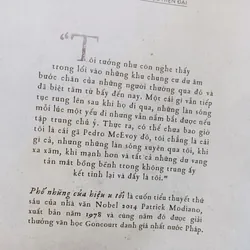 HIỆN ĐẠI
“Tôi tưởng như còn nghe thấy
trong lối vào những khu chung cư dư âm
bước chân của những người thường qua đó và
đã biệt tăm từ bấy đến nay. Một cái gì vẫn tiếp
tục rung lên sau khi họ đi qua, những làn sóng
mỗi lúc một yếu đi nhưng vẫn nắm bắt được nếu
tập trung chú ý. Thực ra, có thể chưa bao giờ
tôi là cái gã Pedro McEvoy đó, tôi chẳng là cái
gì cả, nhưng những làn sóng xuyên qua tôi, khi
xa xăm, khi mạnh hơn và tất cả những dư vang
tản mát bồng bềnh trong không trung ấy
kết tinh lại và đấy là tôi.”
Phố những cửa hiệu u tối là cuốn tiểu thuyết thứ
sáu của nhà văn Nobel 2014 Patrick Modiano,
xuất bản năm 1978 và cũng năm đó được giải
thưởng văn học Goncourt danh giá nhất nước Pháp.